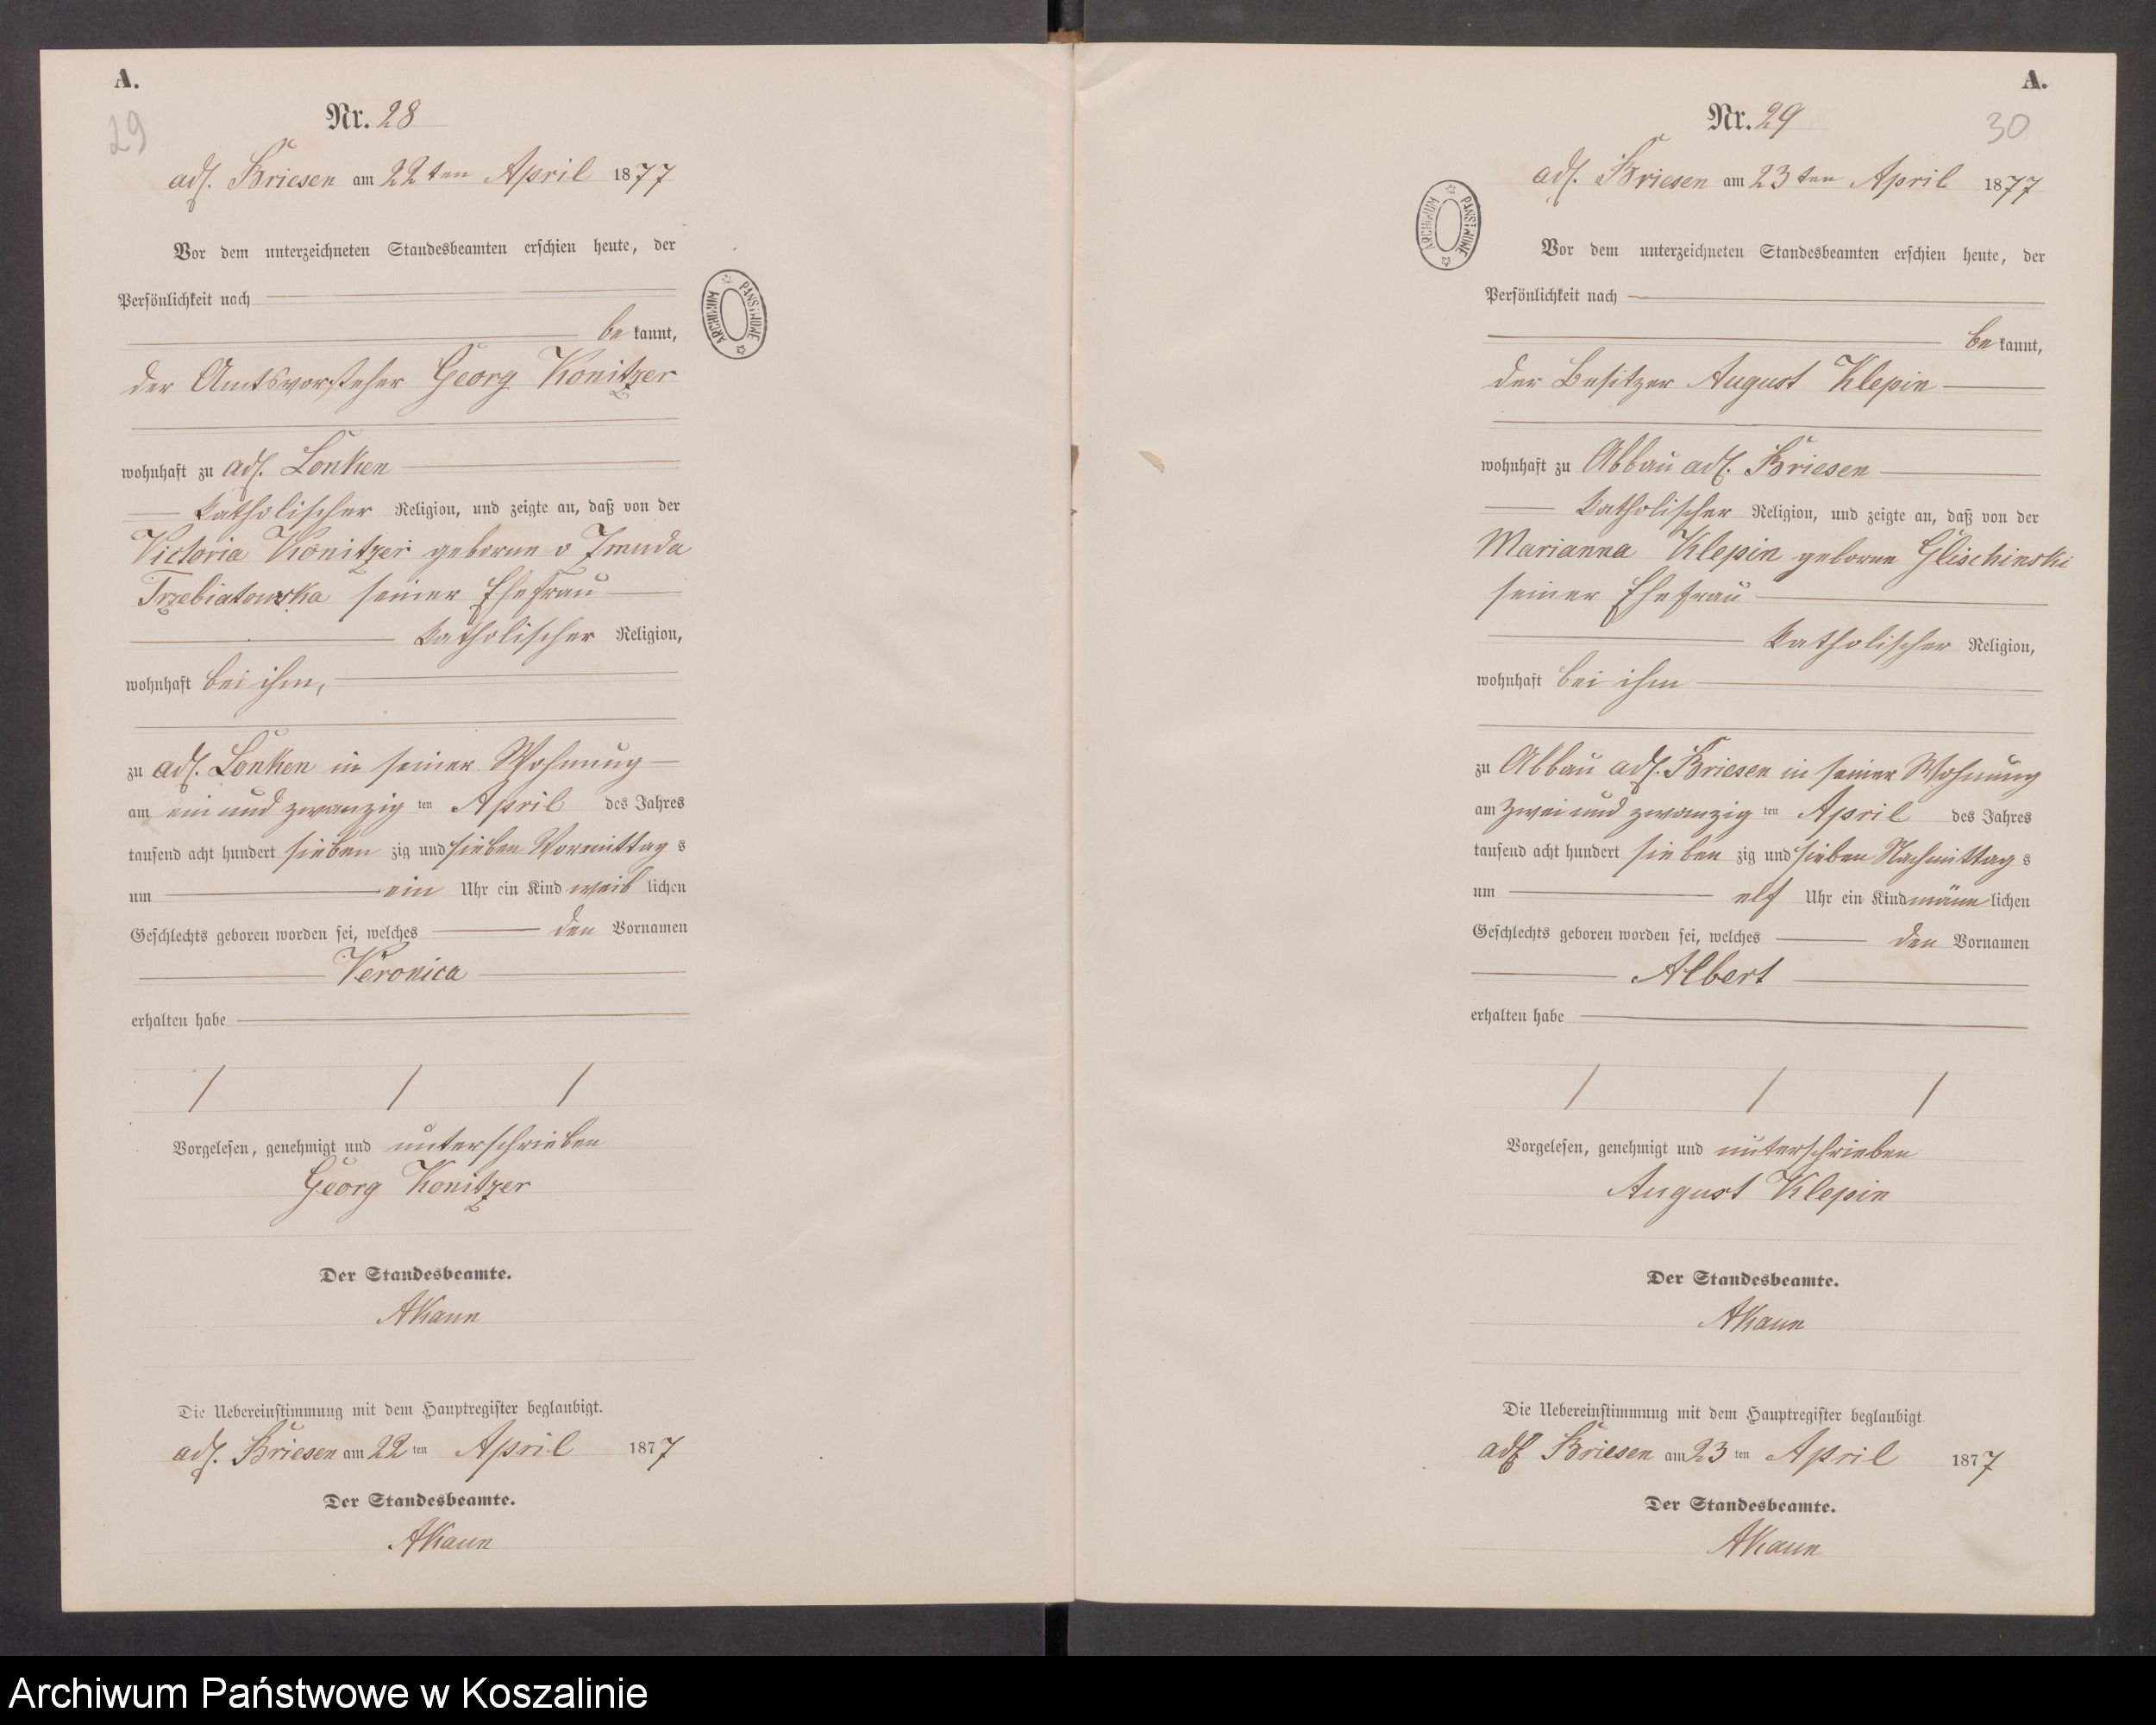 A.
29
Nr. 28
adl. Briesen am 22ten April 1877
Vor dem unterzeichneten Standesbeamten erschien heute, der
Persönlichkeit nach
be kannt,
der Amtsvorsteher Georg Konitzer
wohnhaft zu adl. Lonken
katholischer Religion, und zeigte an, daß von der
Victoria Konitzer geborne v Zmuda
Trzebiatowska seiner Ehefrau
katholischer Religion,
wohnhaft bei ihm,
zu adl. Lonken in seiner Wohnung
am ein und zwanzig ten April des Jahres
tausend acht hundert sieben zig und sieben Vormittag s
um ein Uhr ein Kind weib lichen
Geschlechts geboren worden sei, welches den Vornamen
Veronica
erhalten habe
Vorgelesen, genehmigt und unterschrieben
Georg Konitzer
Der Standesbeamte.
AKaun
Die Uebereinstimmung mit dem Hauptregister beglaubigt.
adl. Briesen am 22 ten April 1877
Der Standesbeamte.
AKaun
ARCHIWUM PAŃSTWOWE
A.
30
Nr. 29
adl. Briesen am 23ten April 1877
Vor dem unterzeichneten Standesbeamten erschien heute, der
Persönlichkeit nach
be kannt,
der Besitzer August Klepin
wohnhaft zu Abbau adl. Briesen
katholischer Religion, und zeigte an, daß von der
Marianna Klepin geborne Glischinski
seiner Ehefrau
katholischer Religion,
wohnhaft bei ihm
zu Abbau adl. Briesen in seiner Wohnung
am zwei und zwanzig ten April des Jahres
tausend acht hundert sieben zig und sieben Nachmittag s
um elf Uhr ein Kind männ lichen
Geschlechts geboren worden sei, welches den Vornamen
Albert
erhalten habe
Vorgelesen, genehmigt und unterschrieben
August Klepin
Der Standesbeamte.
AKaun
Die Uebereinstimmung mit dem Hauptregister beglaubigt
adl Briesen am 23 ten April 1877
Der Standesbeamte.
AKaun
ARCHIWUM PAŃSTWOWE
Archiwum Państwowe w Koszalinie